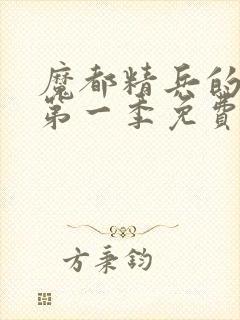 魔都精兵的
第一季免費
方秉鈞